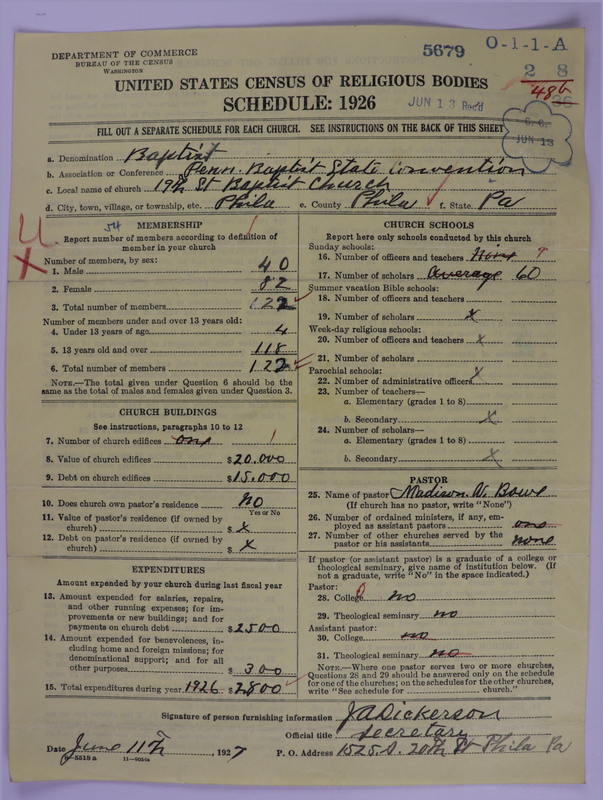 DEPARTMENT OF COMMERCE
BUREAU OF THE CENSUS
WASHINGTON
5679
0-1-1-A
2 8
486
36
UNITED STATES CENSUS OF RELIGIOUS BODIES
SCHEDULE: 1926
JUN 13 Rec'd
JUN 13
FILL OUT A SEPARATE SCHEDULE FOR EACH CHURCH. SEE INSTRUCTIONS ON THE BACK OF THIS SHEET
a. Denomination Baptist
b. Association or Conference Penn. Baptist State Convention
c. Local name of church 19th St Baptist Church
d. City, town, village, or township, etc. Phila e. County Phila f. State Pa
U
X
54
MEMBERSHIP
Report number of members according to definition of member in your church
Number of members, by sex:
1. Male 40
2. Female 82
3. Total number of members 122
Number of members under and over 13 years old:
4. Under 13 years of age 4
5. 13 years old and over 118
6. Total number of members 122
NOTE.—The total given under Question 6 should be the same as the total of males and females given under Question 3.
CHURCH BUILDINGS
See instructions, paragraphs 10 to 12
7. Number of church edifices one 1
8. Value of church edifices $20.000
9. Debt on church edifices $15.000
10. Does church own pastor's residence No
Yes or No
11. Value of pastor's residence (if owned by church) $ x
12. Debt on pastor's residence (if owned by church) $ x
EXPENDITURES
Amount expended by your church during last fiscal year
13. Amount expended for salaries, repairs, and other running expenses; for improvements or new buildings; and for payments on church debt $2500
14. Amount expended for benevolences, including home and foreign missions; for denominational support; and for all other purposes $300
15. Total expenditures during year 1926 $2800
CHURCH SCHOOLS
Report here only schools conducted by this church
Sunday schools:
16. Number of officers and teachers Nine 9
17. Number of scholars average 60
Summer vacation Bible schools:
18. Number of officers and teachers
19. Number of scholars x
Week-day religious schools:
20. Number of officers and teachers x
21. Number of scholars
Parochial schools:
22. Number of administrative officers x
23. Number of teachers—
a. Elementary (grades 1 to 8)
b. Secondary x
24. Number of scholars—
a. Elementary (grades 1 to 8)
b. Secondary x
PASTOR
25. Name of pastor Madison W. Bowe
(If church has no pastor, write "None")
26. Number of ordained ministers, if any, employed as assistant pastors
27. Number of other churches served by the pastor or his assistants none
If pastor (or assistant pastor) is a graduate of a college or theological seminary, give name of institution below. (If not a graduate, write "No" in the space indicated.)
Pastor:
28. College no
29. Theological seminary no
Assistant pastor:
30. College no
31. Theological seminary no
NOTE.—Where one pastor serves two or more churches, Questions 28 and 29 should be answered only on the schedule for one of the churches; on the schedules for the other churches, write "See schedule for church."
Signature of person furnishing information J A Dickerson
Official title Secretary
Date June 11th, 1927 P. O. Address 1525 S. 20th St Phila Pa
11—9054a